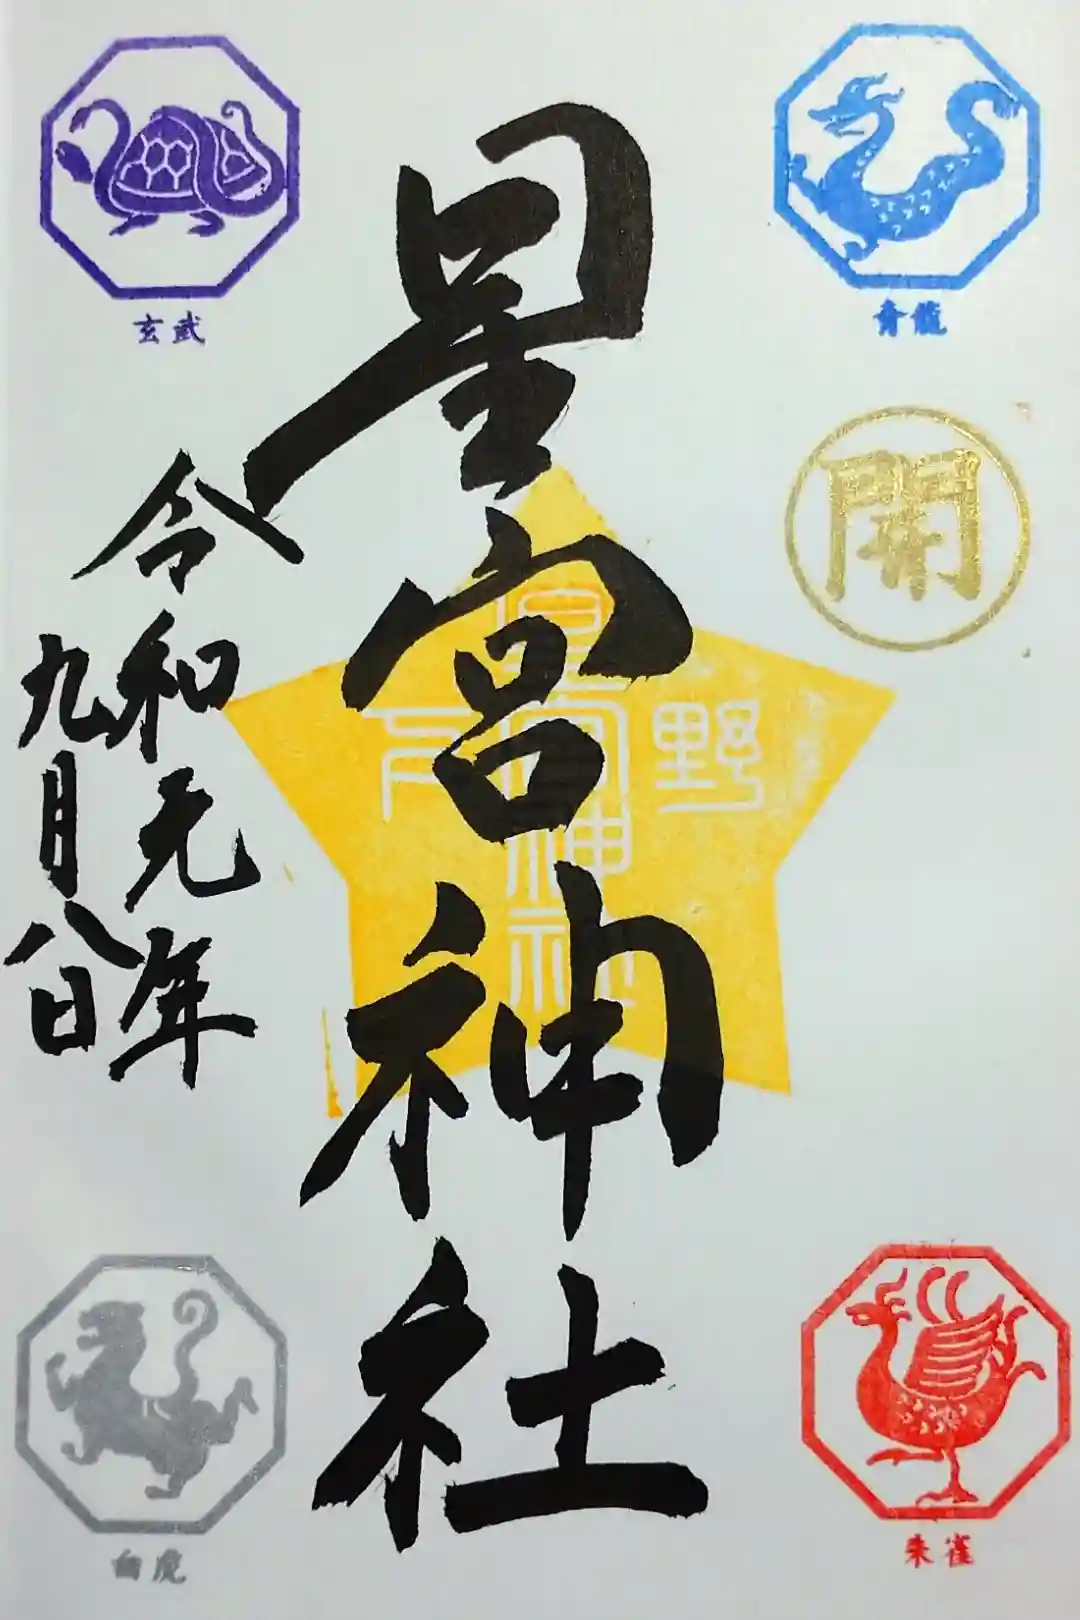 青龍
開
朱雀
星宮神社
下野
星宮神社
令和元年
九月八日
玄武
白虎